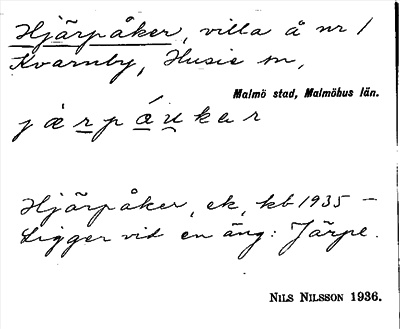 Hjärpåker, villa å nr 1
Kvarnby, Husie sn,
Malmö stad, Malmöhus län.
j æ r p á u k a r
Hjärpåker, ek, kb 1935 –
Ligger vid en äng: Järpe.
NILS NILSSON 1936.